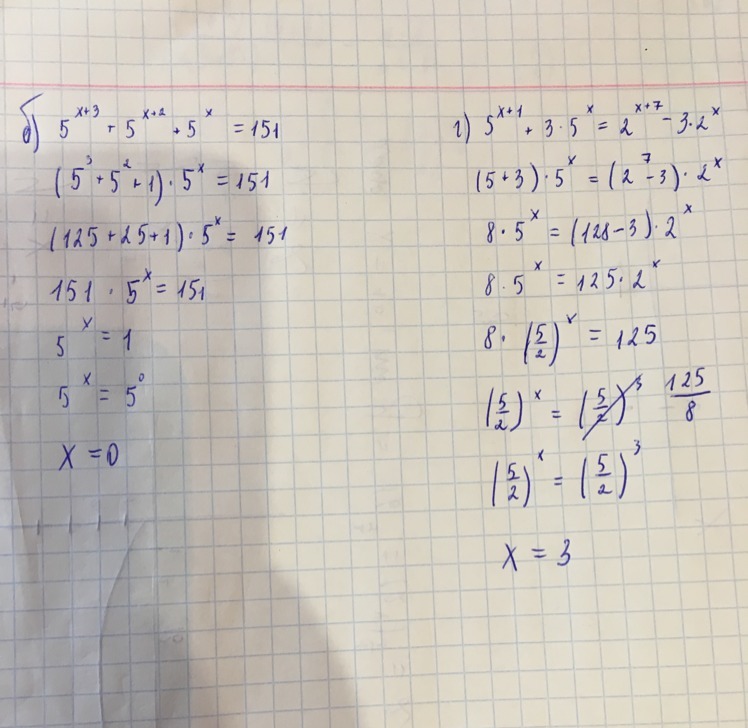 б) 5^{x+3} + 5^{x+2} + 5^x = 151
(5^3 + 5^2 + 1) · 5^x = 151
(125 + 25 + 1) · 5^x = 151
151 · 5^x = 151
5^x = 1
5^x = 5^0
x = 0
г) 5^{x+1} + 3 · 5^x = 2^{x+7} - 3 · 2^x
(5 + 3) · 5^x = (2^7 - 3) · 2^x
8 · 5^x = (128 - 3) · 2^x
8 · 5^x = 125 · 2^x
8 · (5/2)^x = 125
(5/2)^x = (5/2)^3 125/8
(5/2)^x = (5/2)^3
x = 3